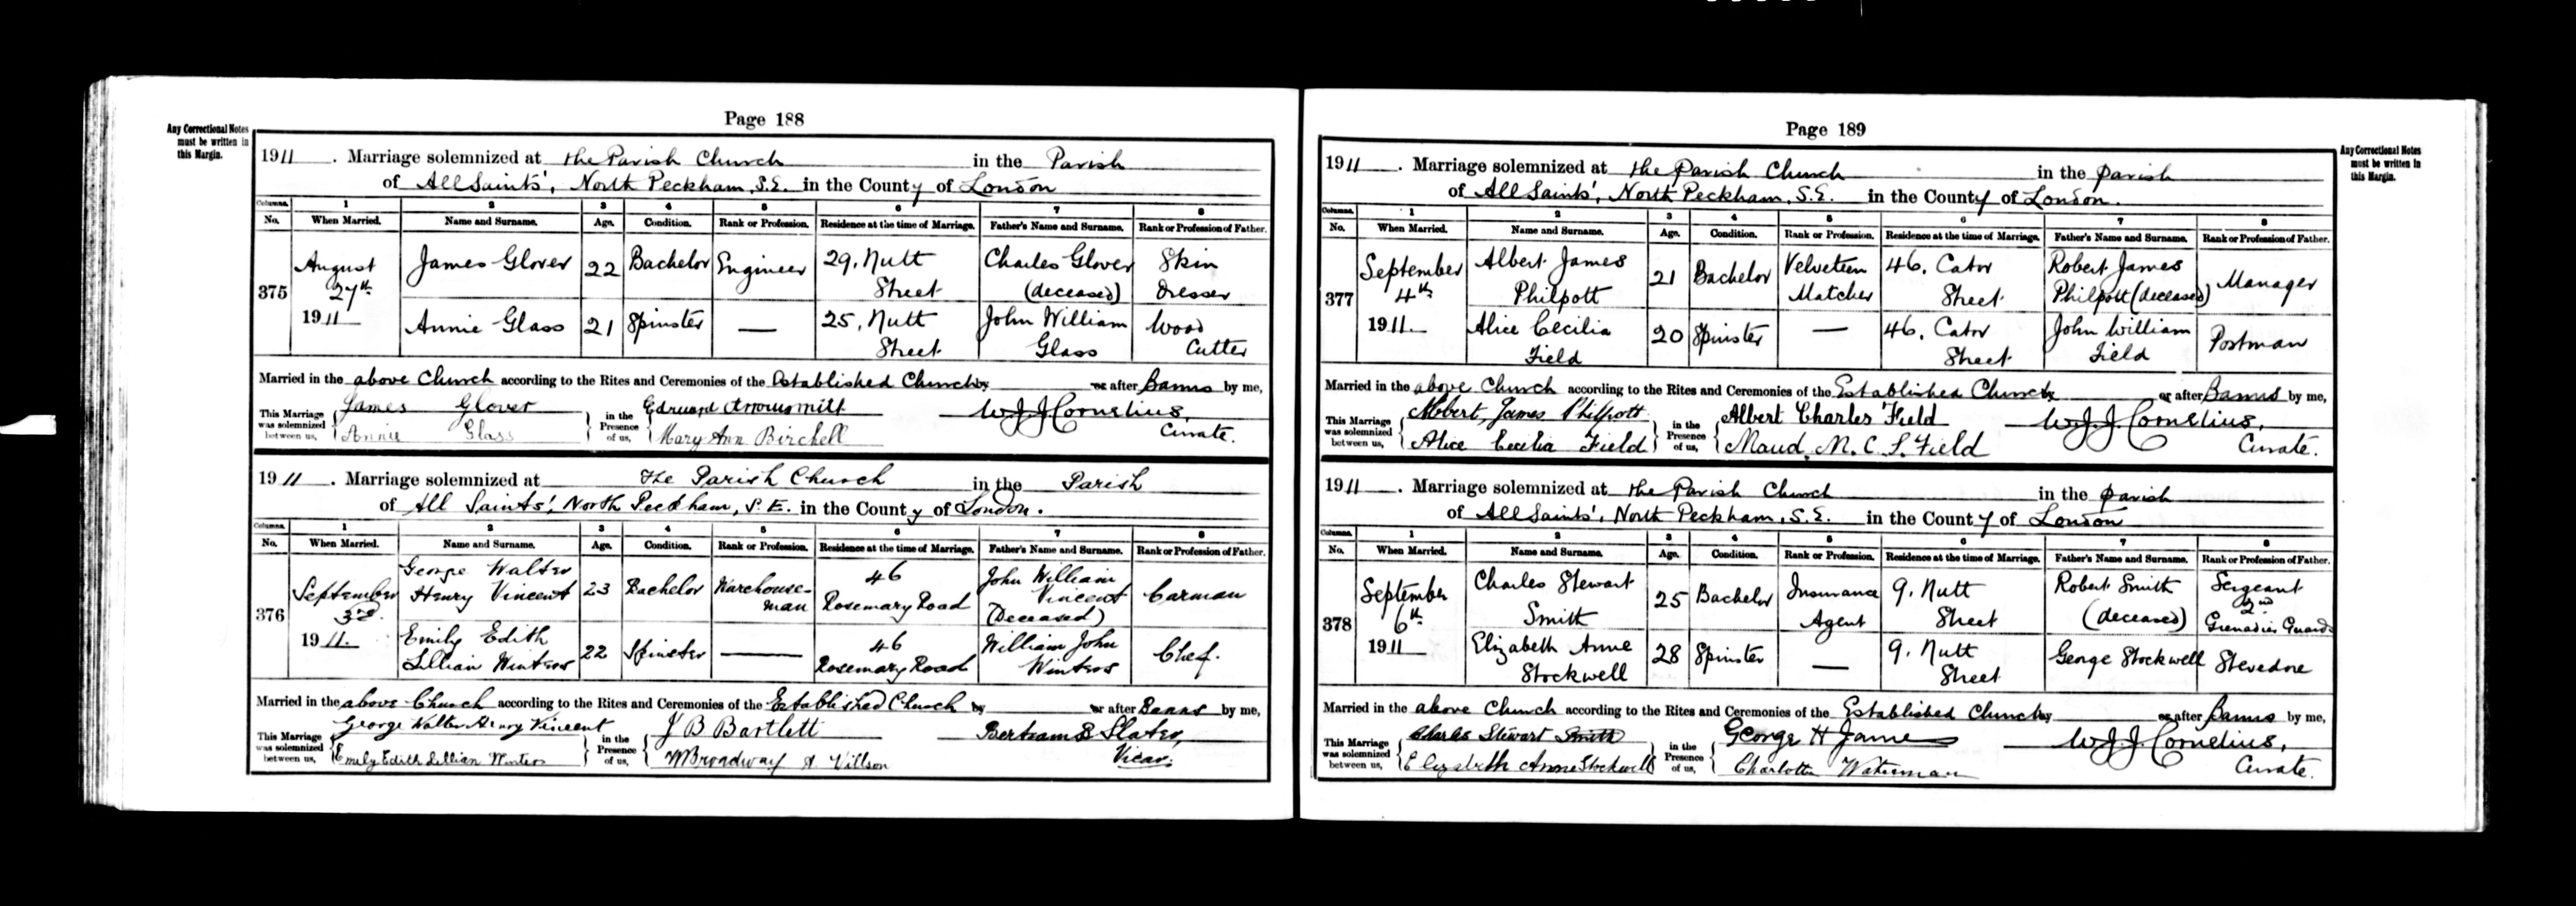 Page 188
Any Correctional Notes
must be written in
this Margin.
1911. Marriage solemnized at the Parish Church in the Parish
of All Saints', North Peckham, S.E. in the County of London
Columns. 1 2 3 4 5 6 7 8
No. When Married. Name and Surname. Age. Condition. Rank or Profession. Residence at the time of Marriage. Father's Name and Surname. Rank or Profession of Father.
375 August 27th 1911 James Glover 22 Bachelor Engineer 29, Nutt Street Charles Glover (deceased) Skin Dresser
Annie Glass 21 Spinster — 25, Nutt Street John William Glass Wood Cutter
Married in the above Church according to the Rites and Ceremonies of the Established Church by or after Banns by me,
This Marriage was solemnized between us, James Glover Annie Glass in the Presence of us, Edward Arrowsmith Mary Ann Birchell W.J.J. Cornelius, Curate.
1911. Marriage solemnized at The Parish Church in the Parish
of All Saints', North Peckham, S.E. in the County of London.
Columns. 1 2 3 4 5 6 7 8
No. When Married. Name and Surname. Age. Condition. Rank or Profession. Residence at the time of Marriage. Father's Name and Surname. Rank or Profession of Father.
376 September 3rd. 1911. George Walter Henry Vincent 23 Bachelor Warehouse-man 46 Rosemary Road John William Vincent (Deceased) Carman
Emily Edith Lillian Winters 22 Spinster — 46 Rosemary Road William John Winters Chef.
Married in the above Church according to the Rites and Ceremonies of the Established Church by or after Banns by me,
This Marriage was solemnized between us, George Walter Henry Vincent Emily Edith Lillian Winters in the Presence of us, J B Bartlett M Broadway A Villson Bertram B Slater, Vicar.
Page 189
Any Correctional Notes
must be written in
this Margin.
1911. Marriage solemnized at the Parish Church in the Parish
of All Saints', North Peckham, S.E. in the County of London.
Columns. 1 2 3 4 5 6 7 8
No. When Married. Name and Surname. Age. Condition. Rank or Profession. Residence at the time of Marriage. Father's Name and Surname. Rank or Profession of Father.
377 September 4th 1911. Albert James Philpott 21 Bachelor Velveteen Matcher 46, Cator Street Robert James Philpott (deceased) Manager
Alice Cecilia Field 20 Spinster — 46, Cator Street John William Field Postman
Married in the above Church according to the Rites and Ceremonies of the Established Church by or after Banns by me,
This Marriage was solemnized between us, Albert James Philpott Alice Cecilia Field in the Presence of us, Albert Charles Field Maud. M. C. L. Field W.J.J. Cornelius, Curate.
1911. Marriage solemnized at the Parish Church in the Parish
of All Saints', North Peckham, S.E. in the County of London
Columns. 1 2 3 4 5 6 7 8
No. When Married. Name and Surname. Age. Condition. Rank or Profession. Residence at the time of Marriage. Father's Name and Surname. Rank or Profession of Father.
378 September 6th 1911 Charles Stewart Smith 25 Bachelor Insurance Agent 9, Nutt Street Robert Smith (deceased) Sergeant 2nd Grenadier Guards
Elizabeth Anne Stockwell 28 Spinster — 9, Nutt Street George Stockwell Stevedore
Married in the above Church according to the Rites and Ceremonies of the Established Church by or after Banns by me,
This Marriage was solemnized between us, Charles Stewart Smith Elizabeth Anne Stockwell in the Presence of us, George H James Charlotte Waterman W.J.J. Cornelius, Curate.